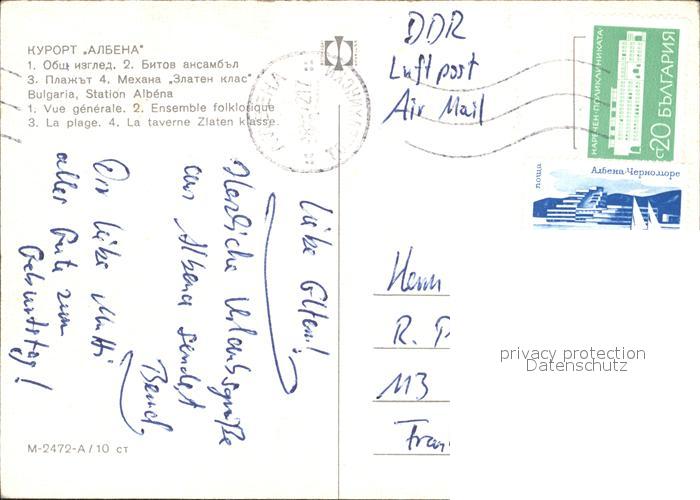 КУРОРТ „АЛБЕНА"
1. Общ изглед. 2. Битов ансамбъл
3. Плажът 4. Механа „Златен клас"
Bulgaria, Station Albéna
1. Vue générale. 2. Ensemble folklorique
3. La plage. 4. La taverne Zlaten klasse
Liebe Eltern!
Herzliche Urlaubsgrüße
aus Albena sendet
Bernd.
Dir liebe Mutti
alles Gute zum
Geburtstag!
М-2472-А / 10 ст
DDR
Luftpost
Air Mail
НАРЕЧЕН-ПОЛИКЛИНИКАТА
ст 20 БЪЛГАРИЯ
поща
Албена-Черноморе
Herrn
R.
113
privacy protection
Datenschutz